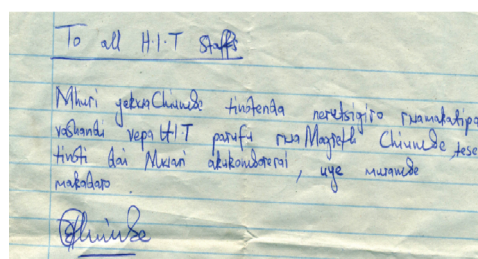 To all H.I.T Staffs
Mhuri yekwaChiunde tinotenda nerutsigiro rwamakatipa
vashandi vepa H.I.T parufu rwa Magreth Chiunde, tese
tinoti dai Mwari akakomborerai, uye muramde
makadaro.